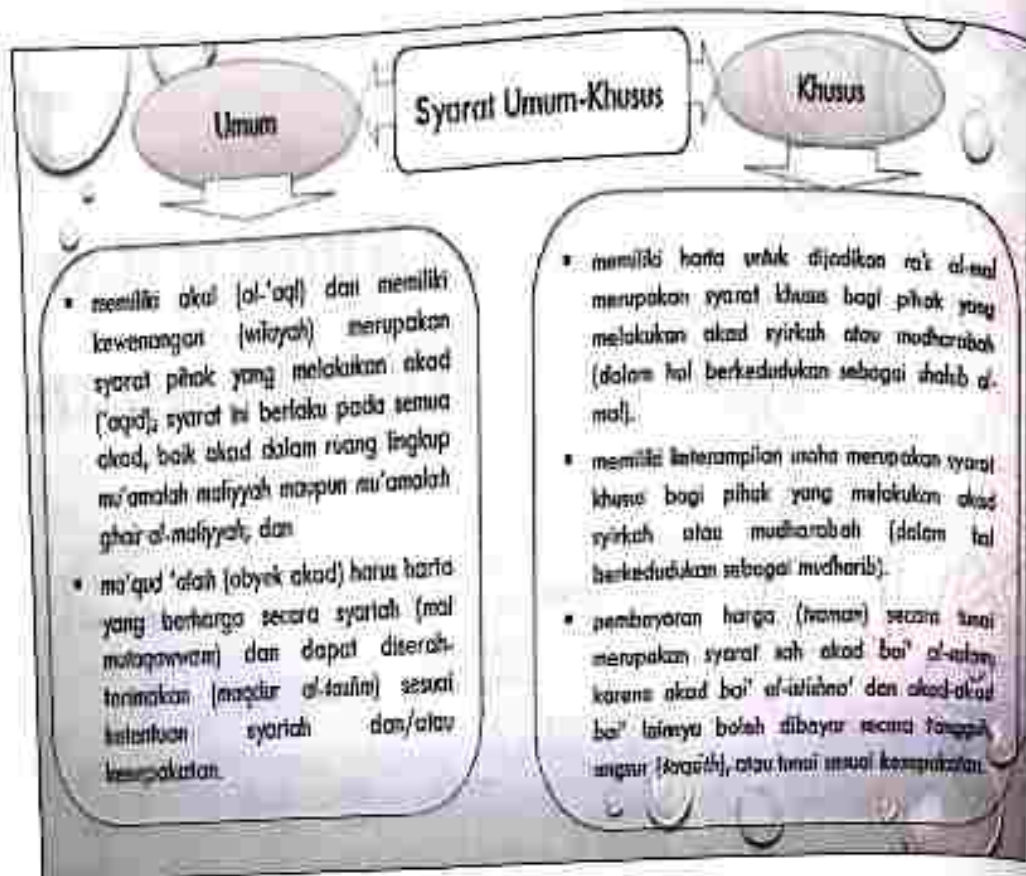 Syarat Umum-Khusus
Umum
memiliki akal (al-'aql) dan memiliki
kewenangan (wilayah) merupakan
syarat pihak yang melakukan akad
('aqid); syarat ini berlaku pada semua
akad, baik akad dalam ruang lingkup
mu'amalah maliyyah maupun mu'amalah
ghair al-maliyyah; dan
ma'qud 'alaih (obyek akad) harus harta
yang berharga secara syariah (mal
mutaqawwam) dan dapat diserah-
terimakan (maqdur al-taslim) sesuai
ketentuan syariah dan/atau
kesepakatan.
Khusus
memiliki harta untuk dijadikan ra's al-mal
merupakan syarat khusus bagi pihak yang
melakukan akad syirkah atau mudharabah
(dalam hal berkedudukan sebagai shahib al-
mal).
memiliki keterampilan usaha merupakan syarat
khusus bagi pihak yang melakukan akad
syirkah atau mudharabah (dalam hal
berkedudukan sebagai mudharib).
pembayaran harga (tsaman) secara tunai
merupakan syarat sah akad bai' al-salam,
karena akad bai' al-istishna' dan akad-akad
bai' lainnya boleh dibayar secara tangguh,
angsur (taqsith), atau tunai sesuai kesepakatan.